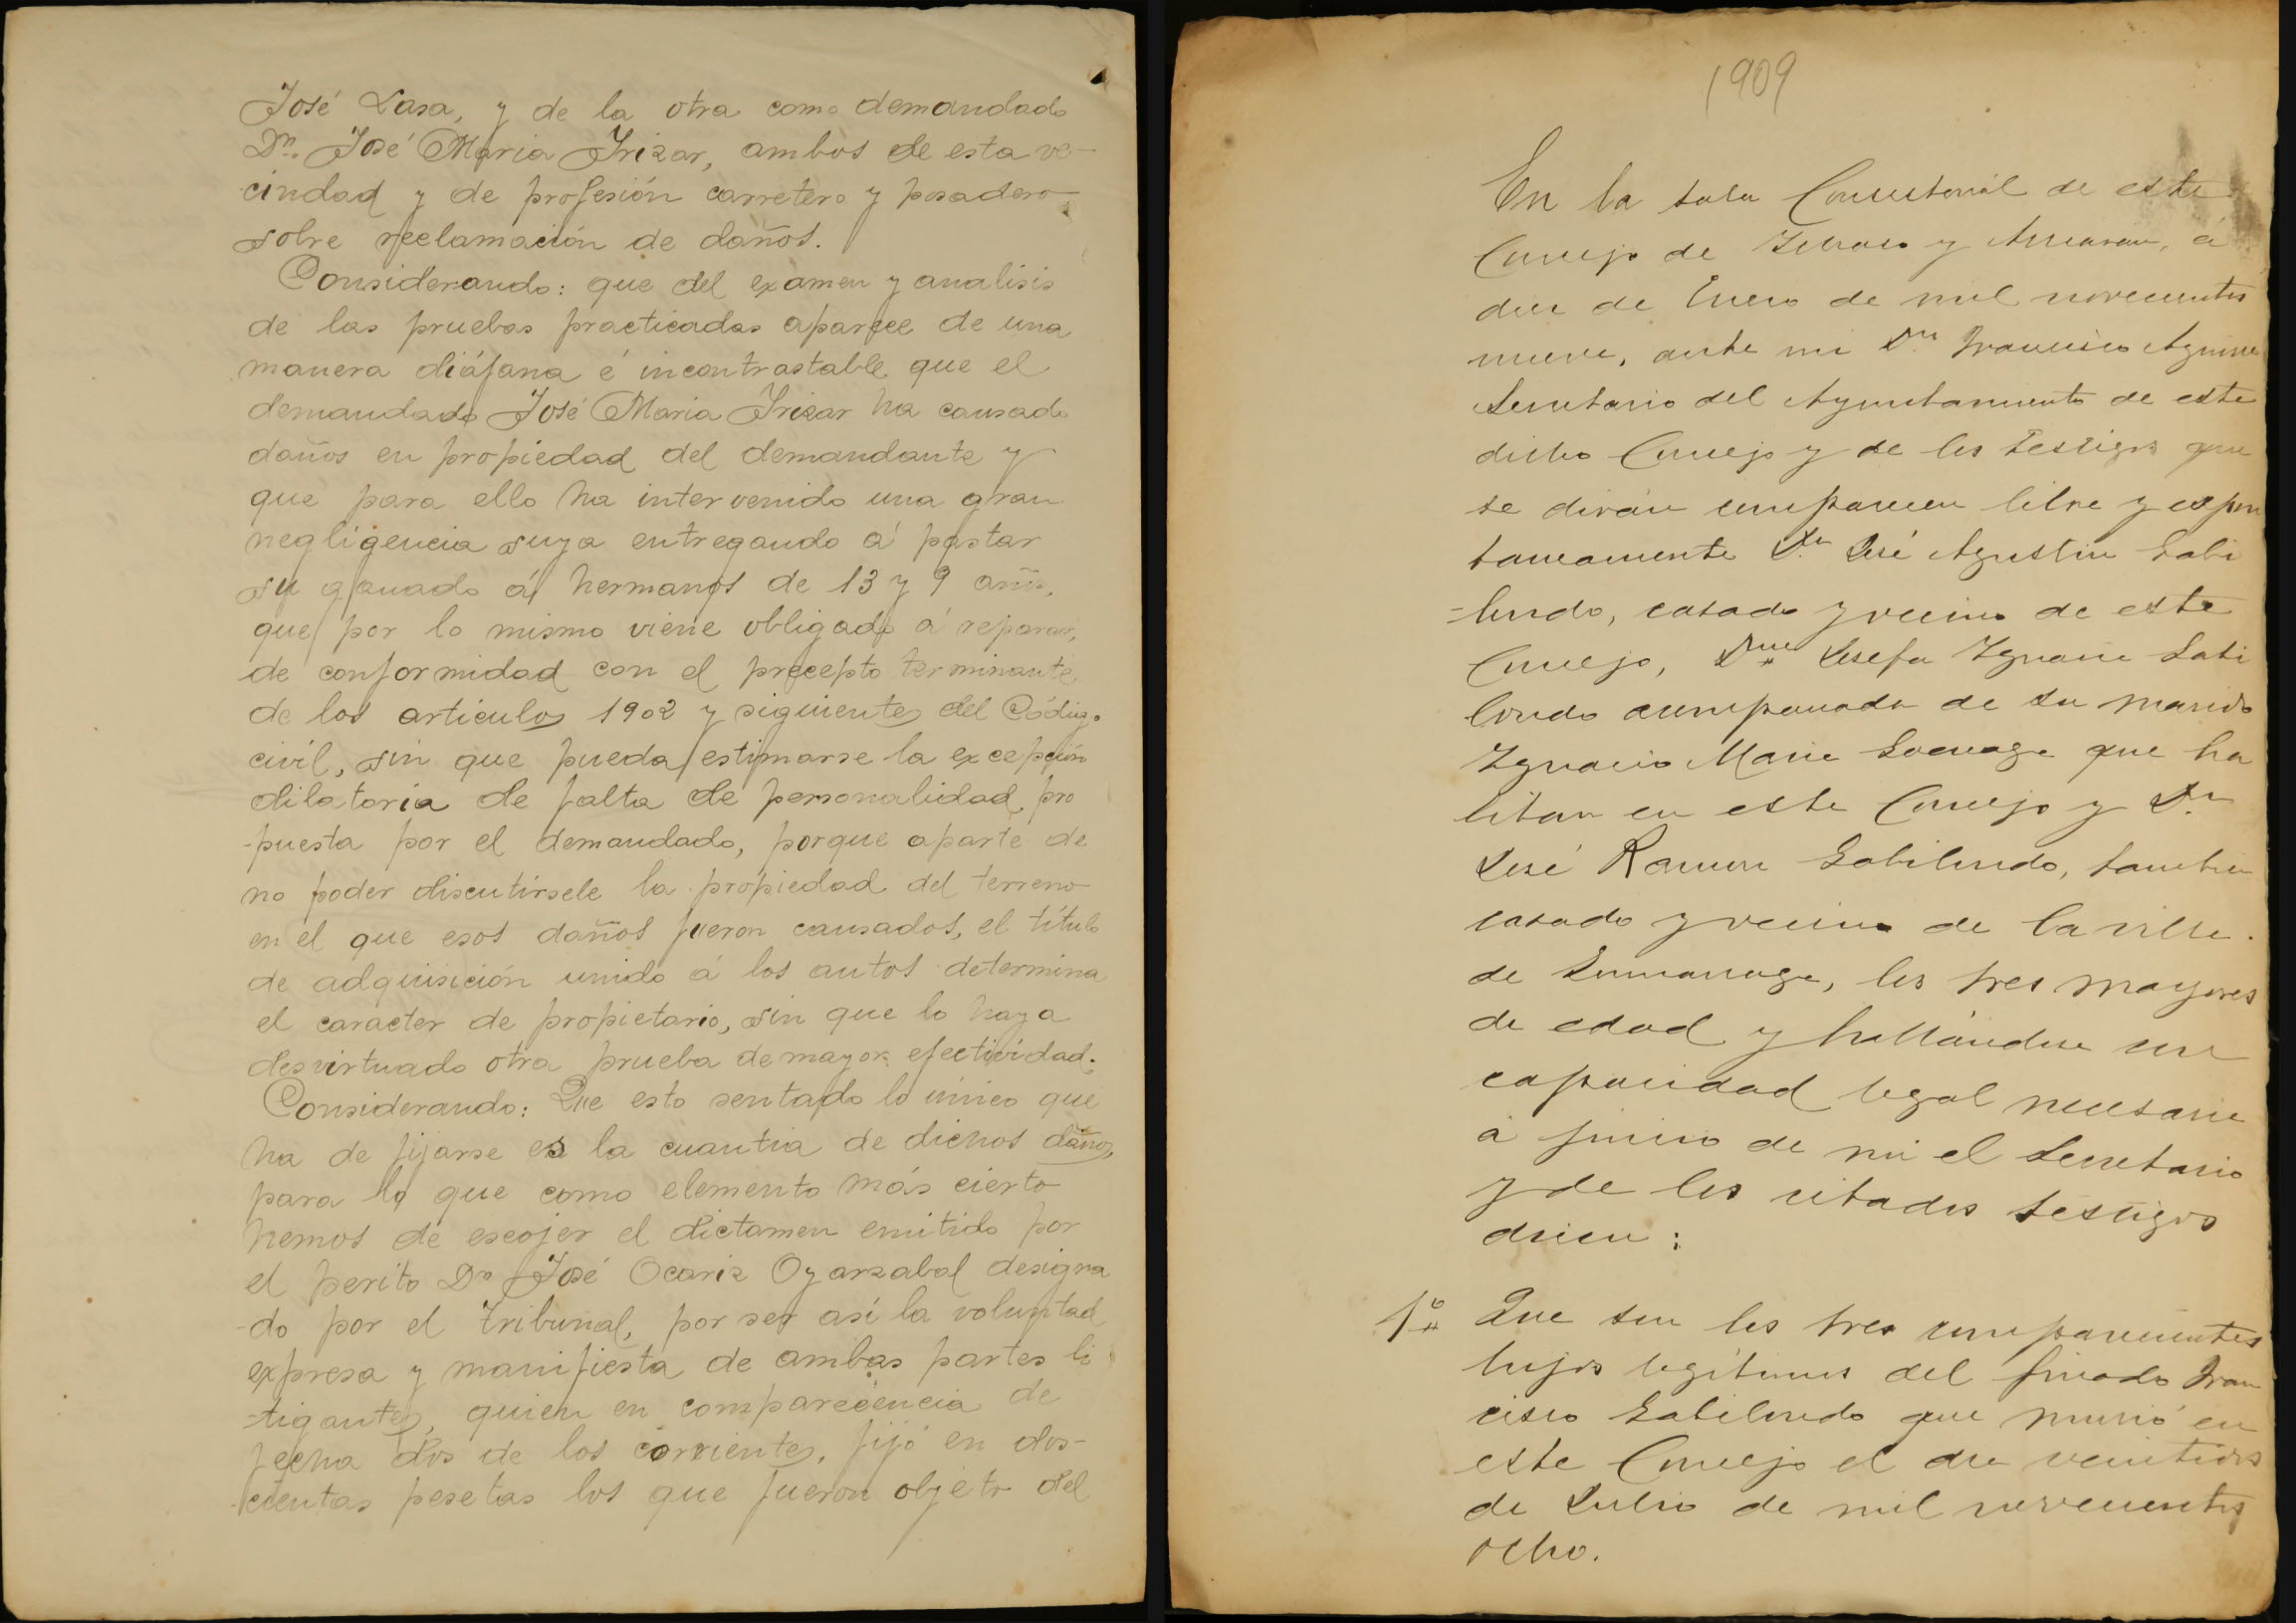 José Lasa, y de la otra como demandado
Dn. José Maria Irizar, ambos de esta ve-
cindad y de profesión carretero y posadero
sobre reclamación de daños.
Considerando: que del examen y analisis
de las pruebas practicadas aparece de una
manera diáfana é incontrastable que el
demandado José Maria Irizar ha causado
daños en propiedad del demandante y
que para ello ha intervenido una gran
negligencia suya entregando á pastar
su ganado á hermanos de 13 y 9 años,
que por lo mismo viene obligado á reparar,
de conformidad con el precepto terminante
de los articulos 1902 y siguientes del Código
civil, sin que pueda estimarse la excepción
dilatoria de falta de personalidad pro
-puesta por el demandado, porque aparte de
no poder discutirsele la propiedad del terreno
en el que esos daños fueron causados, el título
de adquisición unido á los autos determina
el caracter de propietario, sin que lo haya
desvirtuado otra prueba de mayor efectividad.
Considerando: Que esto sentado lo único que
ha de fijarse es la cuantia de dichos daños,
para lo que como elemento más cierto
hemos de escojer el dictamen emitido por
el perito Dn José Ocariz Oyarzabal designa
-do por el tribunal, por ser así la voluntad
expresa y manifiesta de ambas partes li
-tigantes, quien en comparecencia de
fecha dos de los corrientes, fijó en dos-
cientas pesetas los que fueron objeto del
1909
En la sala Consistorial de este
Concejo de y á
diez de Enero de mil novecientos
nueve, ante mi Dn Francisco Aguirre
Secretario del Ayuntamiento de este
dicho Concejo y de los testigos que
se dirán comparecen libre y espon
taneamente Dn José Agustin Gabi
-londo, casado y vecino de este
Concejo, Dña Josefa Ignacia Gabi
londo acompañada de su marido
Ignacio Maria que ha
bitan en este Concejo y Dn
José Ramon Gabilondo, tambien
casado y vecino de la villa
de Zumarraga, los tres mayores
de edad y hallándose con
capacidad legal necesaria
á juicio de mi el Secretario
y de los citados testigos
dicen:
1º Que son los tres comparecientes
hijos legítimos del finado Fran
cisco Gabilondo que murió en
este Concejo el dia veintidos
de Julio de mil novecientos
ocho.